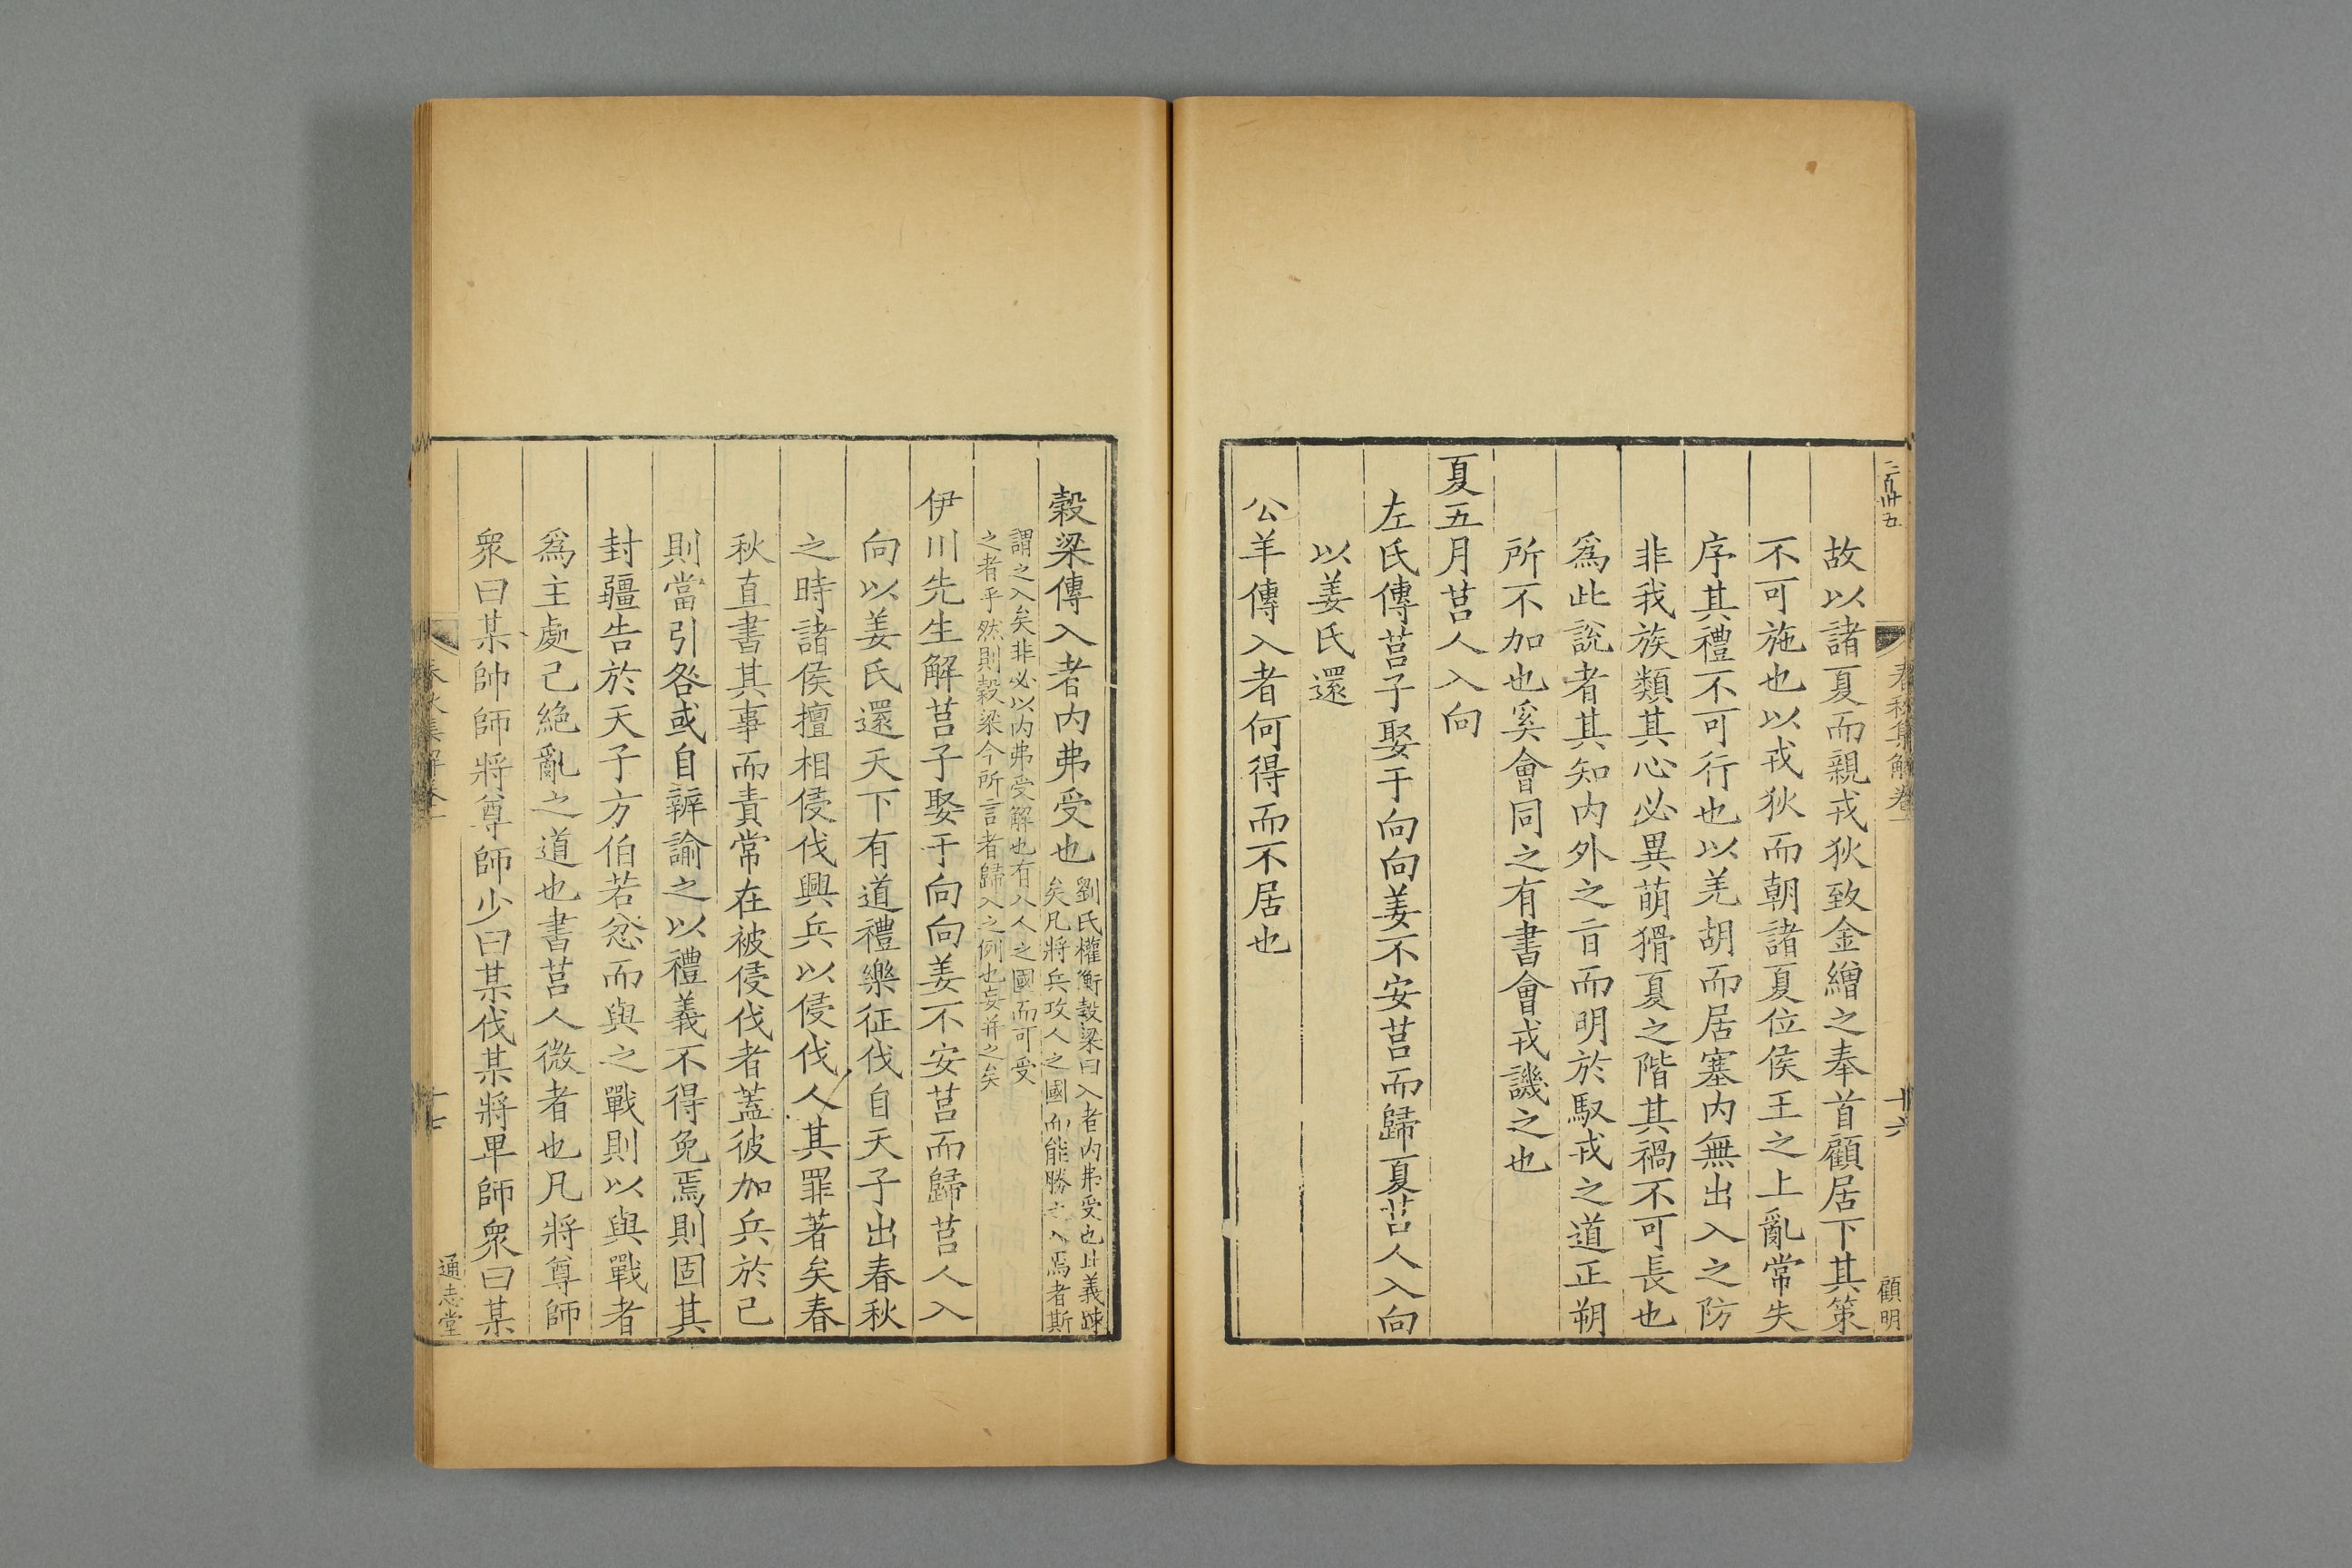 二百卅五
春秋集解卷一
十六
顧明
故以諸夏而親戎狄致金繒之奉首顧居下其策
不可施也以戎狄而朝諸夏位侯王之上亂常失
序其禮不可行也以羌胡而居塞内無出入之防
非我族類其心必異萌猾夏之階其禍不可長也
爲此說者其知内外之旨而明於馭戎之道正朔
所不加也奚會同之有書會戎譏之也
夏五月莒人入向
左氏傳莒子娶于向向姜不安莒而歸夏莒人入向
以姜氏還
公羊傳入者何得而不居也
穀梁傳入者内弗受也
劉氏權衡穀梁曰入者内弗受也此義踈
矣凡將兵攻人之國而能勝之入焉者斯
謂之入矣非必以内弗受解也有入人之國而可受
之者乎然則穀梁今所言者歸入之例也妄并之矣
伊川先生解莒子娶于向向姜不安莒而歸莒人入
向以姜氏還天下有道禮樂征伐自天子出春秋
之時諸侯擅相侵伐興兵以侵伐人其罪著矣春
秋直書其事而責常在被侵伐者蓋彼加兵於己
則當引咎或自辯諭之以禮義不得免焉則固其
封疆告於天子方伯若忿而與之戰則以與戰者
爲主處己絶亂之道也書莒人微者也凡將尊師
衆曰某帥師將尊師少曰某伐某將卑師衆曰某
春秋集解卷一
十七
通志堂